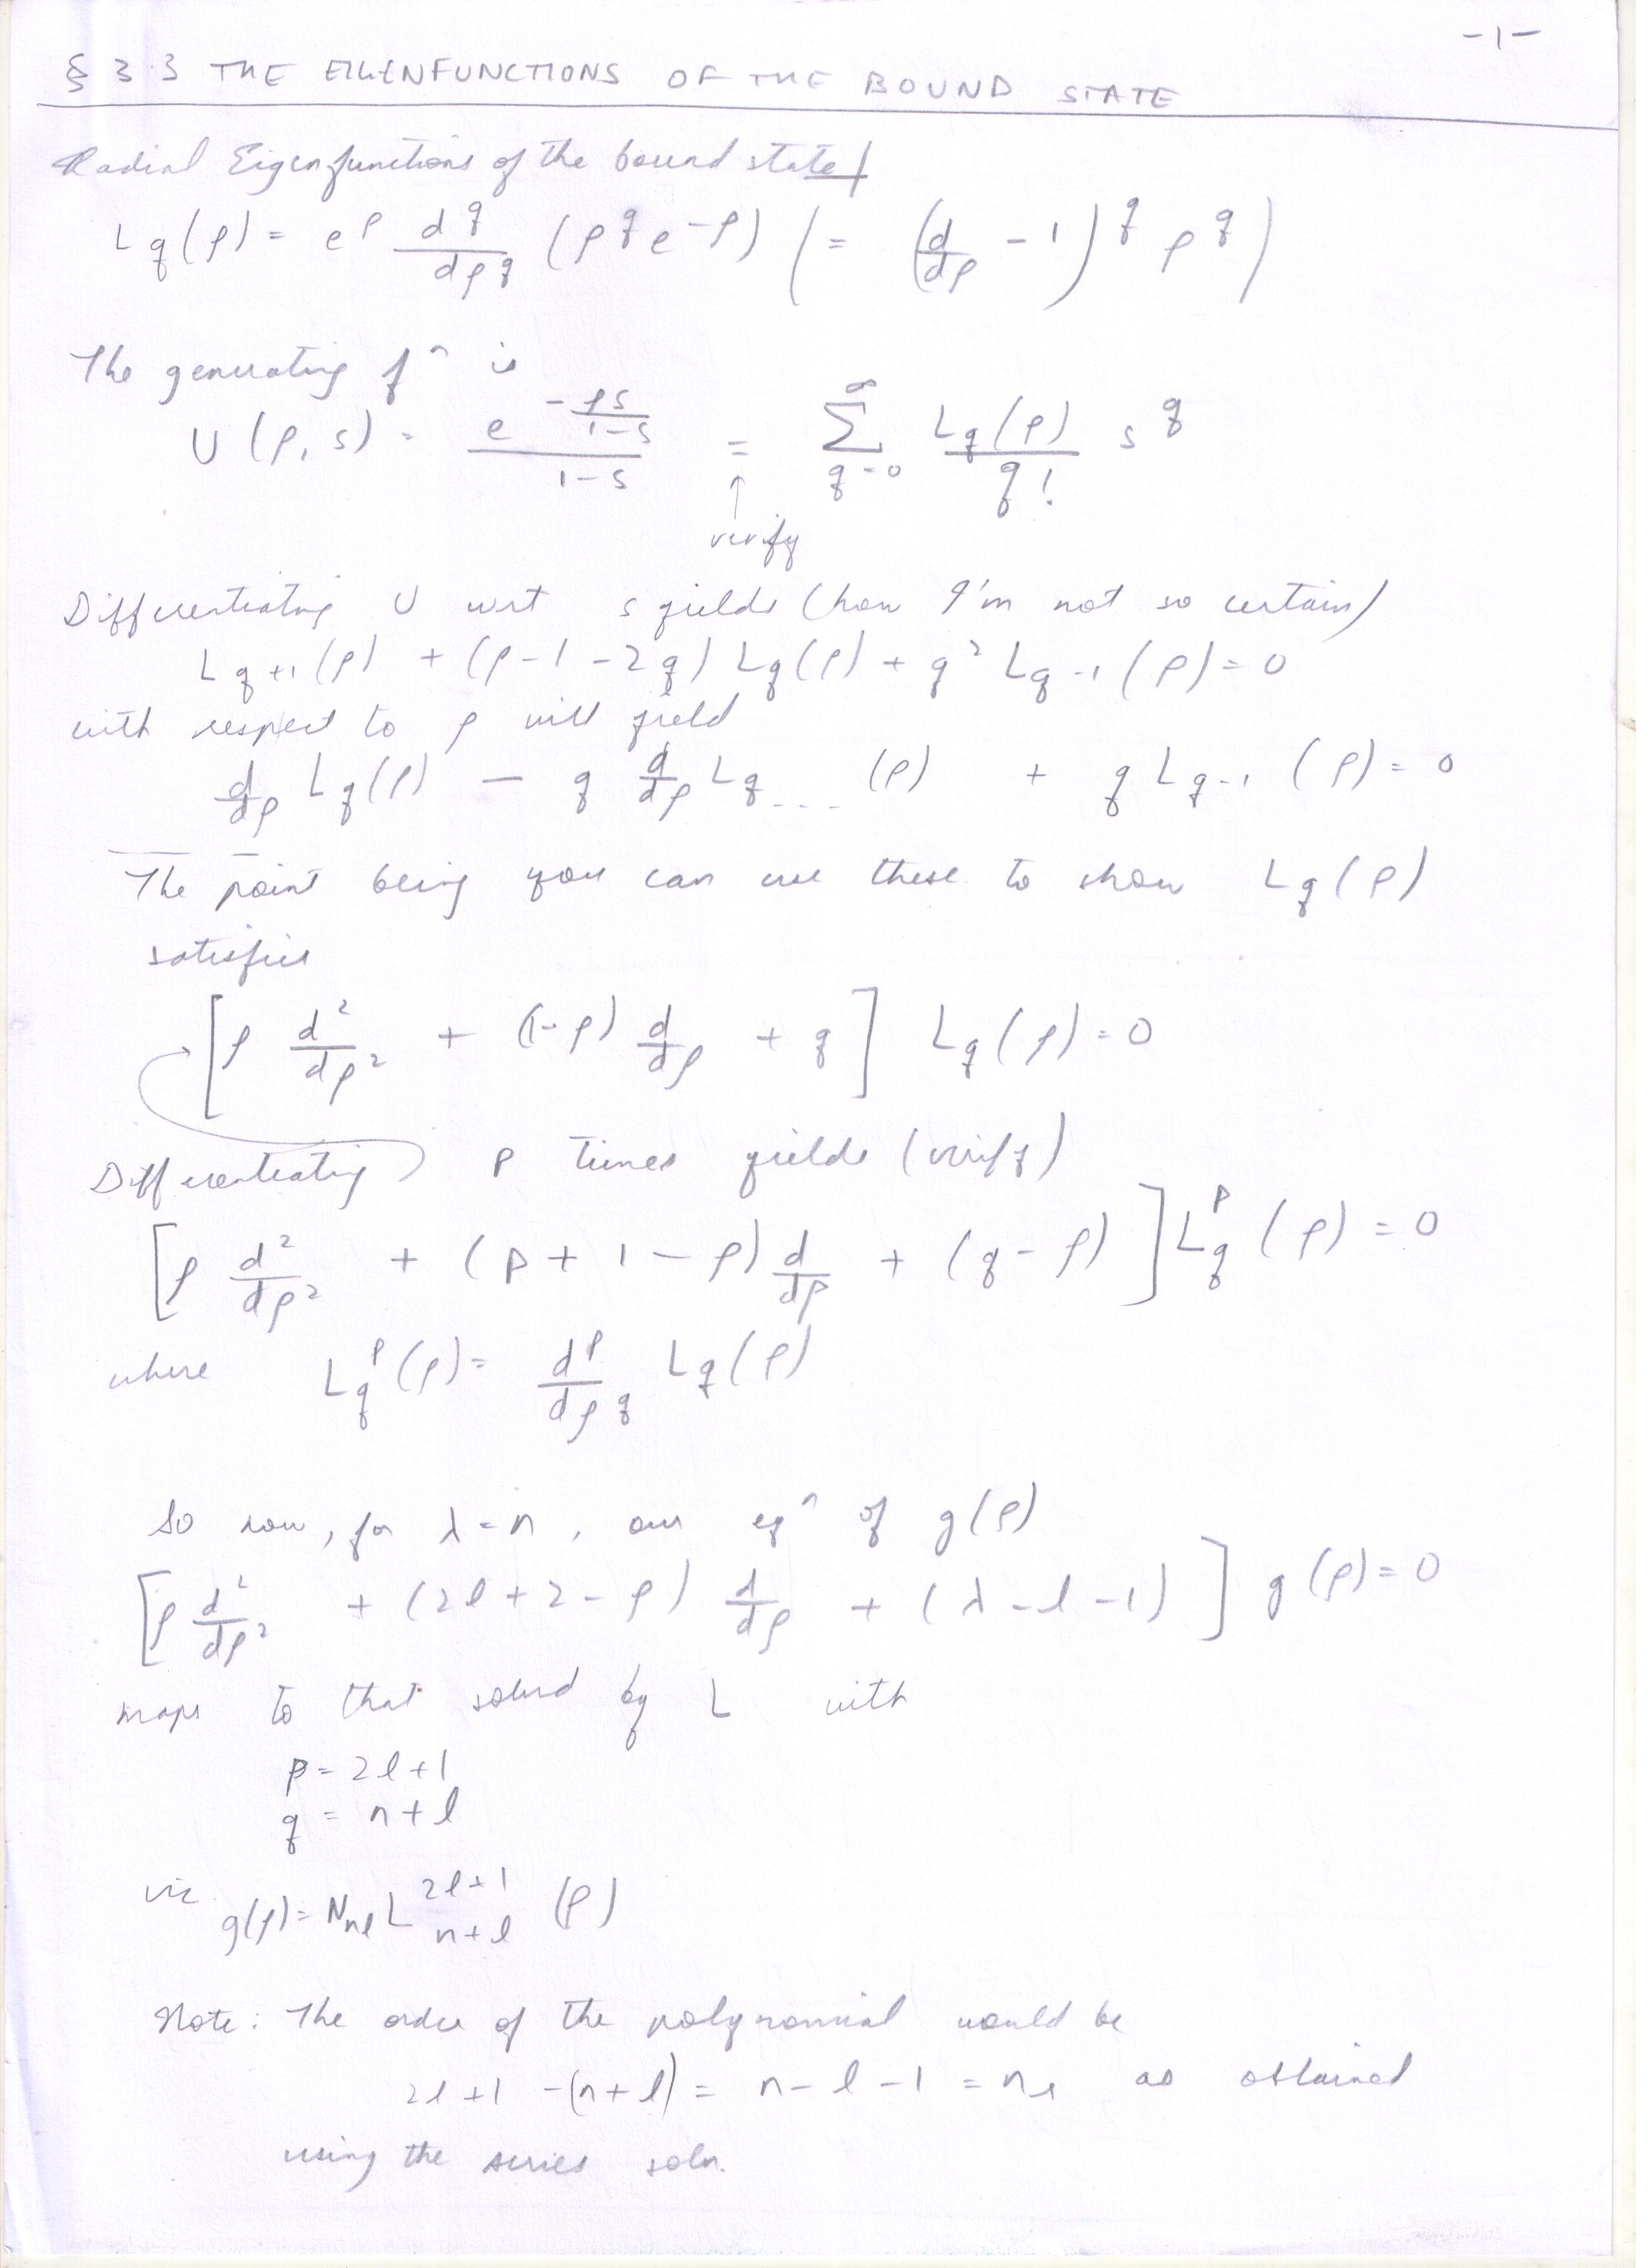 -1-
§ 3.3 THE EIGENFUNCTIONS OF THE BOUND STATE
Radial Eigenfunctions of the bound state
L_q(ρ) = e^ρ d^q/dρ^q (ρ^q e^{-ρ}) (= (d/dρ - 1)^q ρ^q)
The generating fⁿ is
U(ρ, s) = e^{-ρs/(1-s)}/(1-s) = Σ_{q=0}^∞ L_q(ρ)/q! s^q
↑
verify
Differentiating U wrt s yields (how I'm not so certain)
L_{q+1}(ρ) + (ρ-1-2q) L_q(ρ) + q² L_{q-1}(ρ) = 0
with respect to ρ will yield
d/dρ L_q(ρ) - q d/dρ L_q... (ρ) + q L_{q-1}(ρ) = 0
The point being you can use these to show L_q(ρ)
satisfies
[ρ d²/dρ² + (1-ρ) d/dρ + q] L_q(ρ) = 0
Differentiating p times yields (verify)
[ρ d²/dρ² + (p+1-ρ) d/dρ + (q-p)] L_q^p(ρ) = 0
where L_q^p(ρ) = d^p/dρ^q L_q(ρ)
So now, for λ=n, our eqⁿ of g(ρ)
[ρ d²/dρ² + (2l+2-ρ) d/dρ + (λ-l-1)] g(ρ) = 0
maps to that solved by L with
p = 2l+1
q = n+l
viz g(ρ) = N_{nl} L_{n+l}^{2l+1}(ρ)
Note: The order of the polynomial would be
2l+1 -(n+l) = n-l-1 = n_r as obtained
using the series soln.